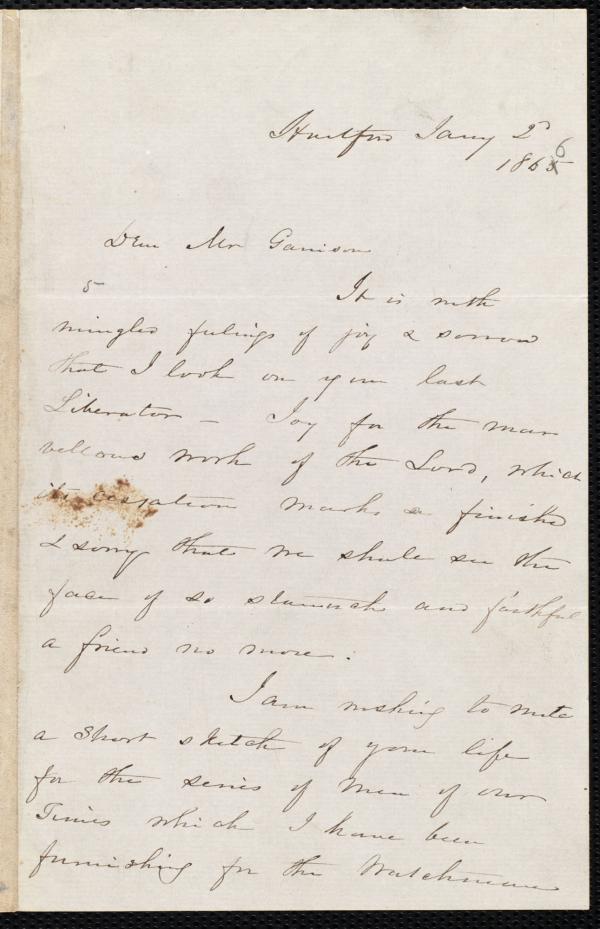 Hartford Jany 2d
1865 6
Dear Mr Garrison
5
It is with
mingled feelings of joy & sorrow
that I look on your last
Liberator - Joy for the mar
vellous work of the Lord, which
its cessation marks as finished
& sorry that we shall see the
face of so staunch and faithful
a friend no more.
I am wishing to write
a short sketch of your life
for the series of Men of our
Times which I have been
furnishing for the Watchman